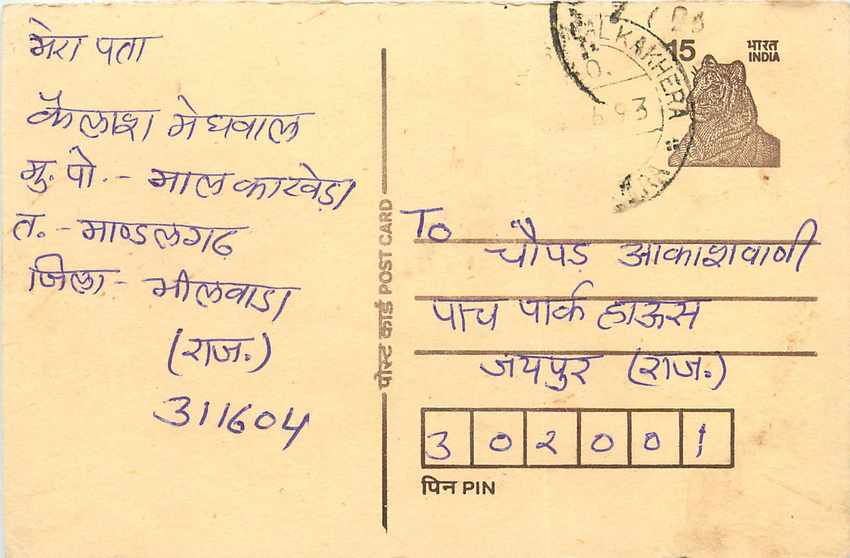 मेरा पता
कैलाश मेघवाल
मु. पो. - मालकाखेड़ा
त. - माण्डलगढ़
जिला - भीलवाडा
(राज.)
311604
पोस्ट कार्ड POST CARD
ALKAKHERA
.O.
6 93
15
भारत
INDIA
To
चौपड़ आकाशवाणी
पाच पार्क हाऊस
जयपुर (राज.)
302001
पिन PIN